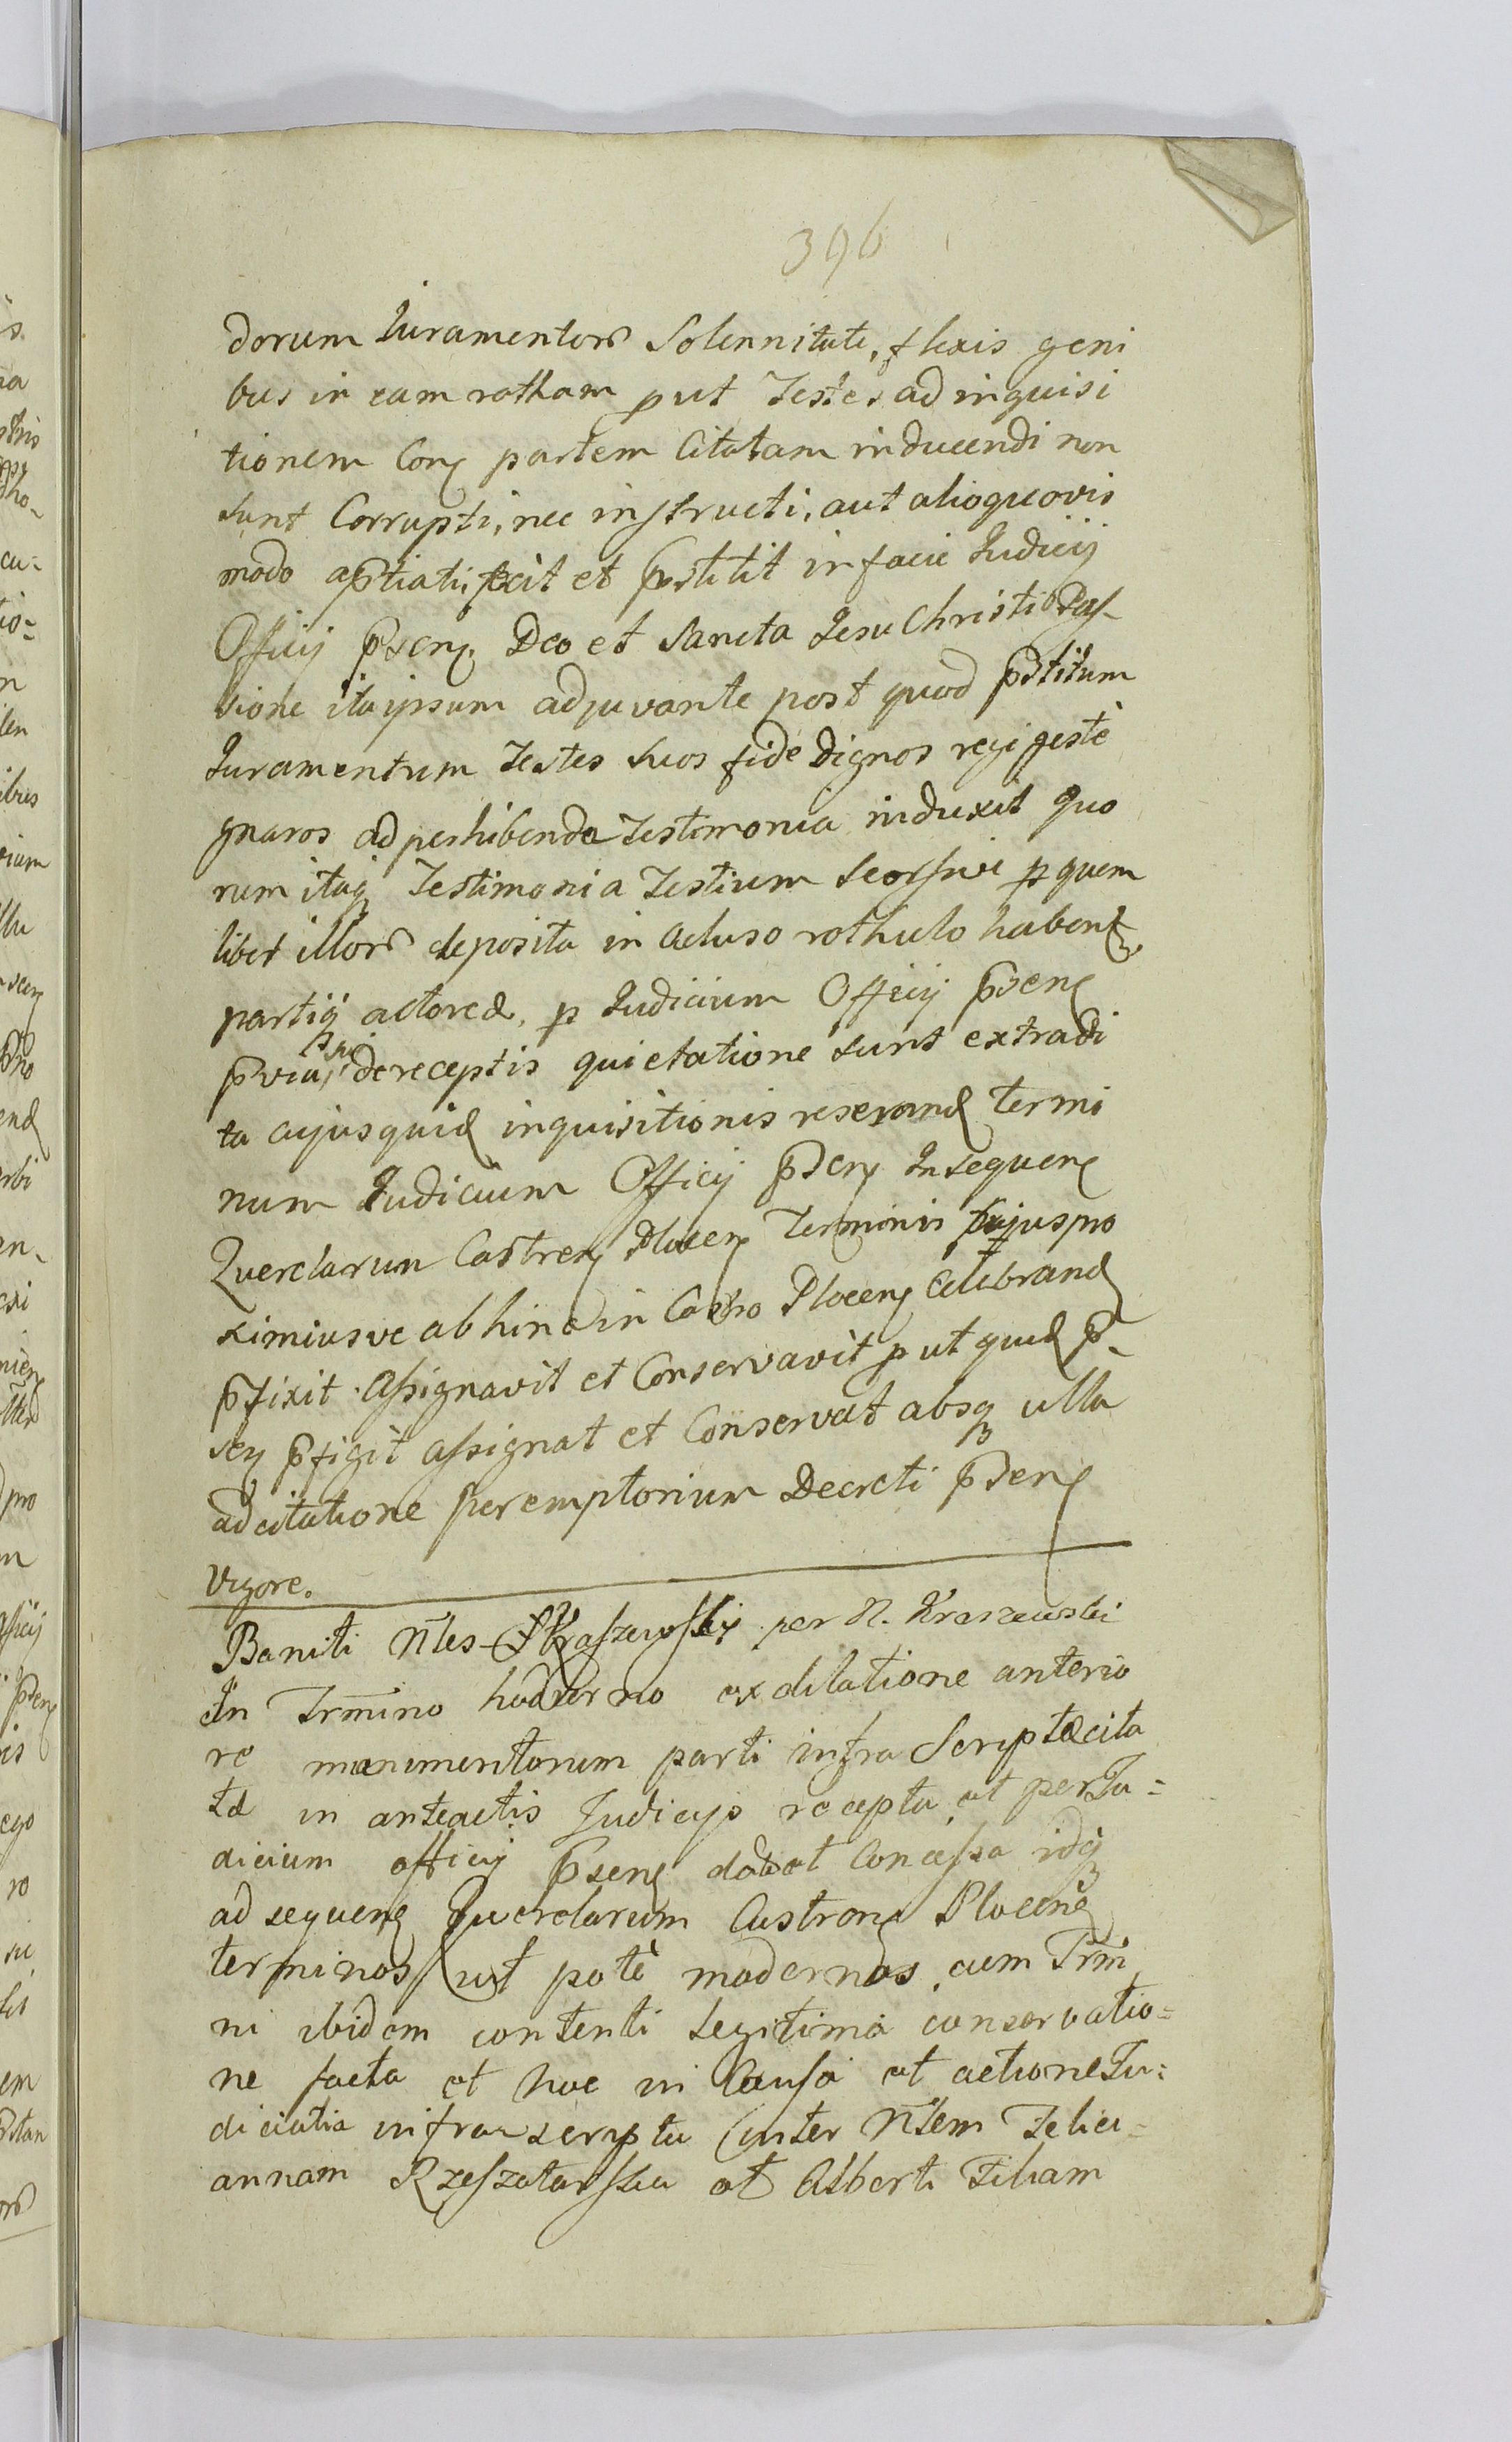 396
dorum Iuramentorũ Solennitate, flexis geni
bus in eam rotham put Testes ad inquisi
tionem Conẽ partem Citatam inducendi non
sunt Corrupti, nec instructi, aut alioquovis
modo aptiati, fecit et pstitit in facie Iudicij
Officij psenẽ. Deo et Sancta Iesu Christi Pas-
sione ita ipsum adjuvante post quod pstitum
Iuramentum Testes suos fide Dignos rei geste
gnaros ad perhibenda Testimonia induxit Quo
rum itaq Testimonia Testium seorsive p quem
libet illorũ deposita in Acluso rothulo habent
partiq actoreæ, p Iudicium Officij psenẽ
pvia de receptis quietatione sunt extradi
ta cujus quid inquisitionis reserand termi
num Iudicium Officij psenẽ Insequenẽ
Querelarum Castrenẽ Plocenẽ Terminis pro
ximiusve ab hinc in Castro Plocenẽ Celebrand
pfixit Assignavit et Conservavit put quid p-
senẽ pfigit assignat et Conservat absq ulla
adcitatione peremptorium Decreti psenẽ
Vigore.
Baniti Nles Kraszewskij per N. Kraszewski
In Trmino hodierno ex dilatione anterio
re munimentorum parti infra Scriptæ cita
tæ in anteactis Judicijs recepta et per Ju=
dicium officij psenẽ data et Concessa idq
ad sequenẽ Querelarum Castrenẽ Plocenẽ
terminos ut pote modernos cum Trmi
ni ibidem contenti legitima conservatio=
ne facta et hoc in Causa et actione Ju=
diciatia infra scripta inter Nlem Felici=
annam Rzeszotarska et Alberti Filiam